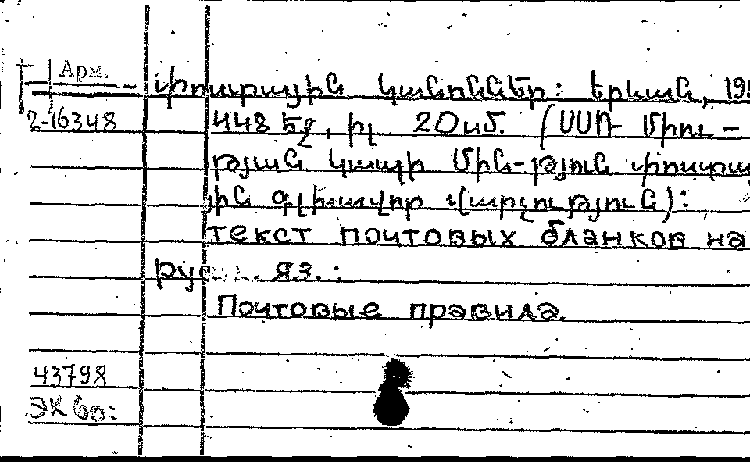 Арм.
Փոստային կանոններ: Երևան, 195
2-16348
448 էջ, իլ 20 սմ. (ՍՍՌ Միու-
թյան Կապի Մին-թյուն փոստա
ին գլխավոր վարչություն):
текст почтовых бланков на
русск. яз.:
Почтовые правила.
43798
ЭК